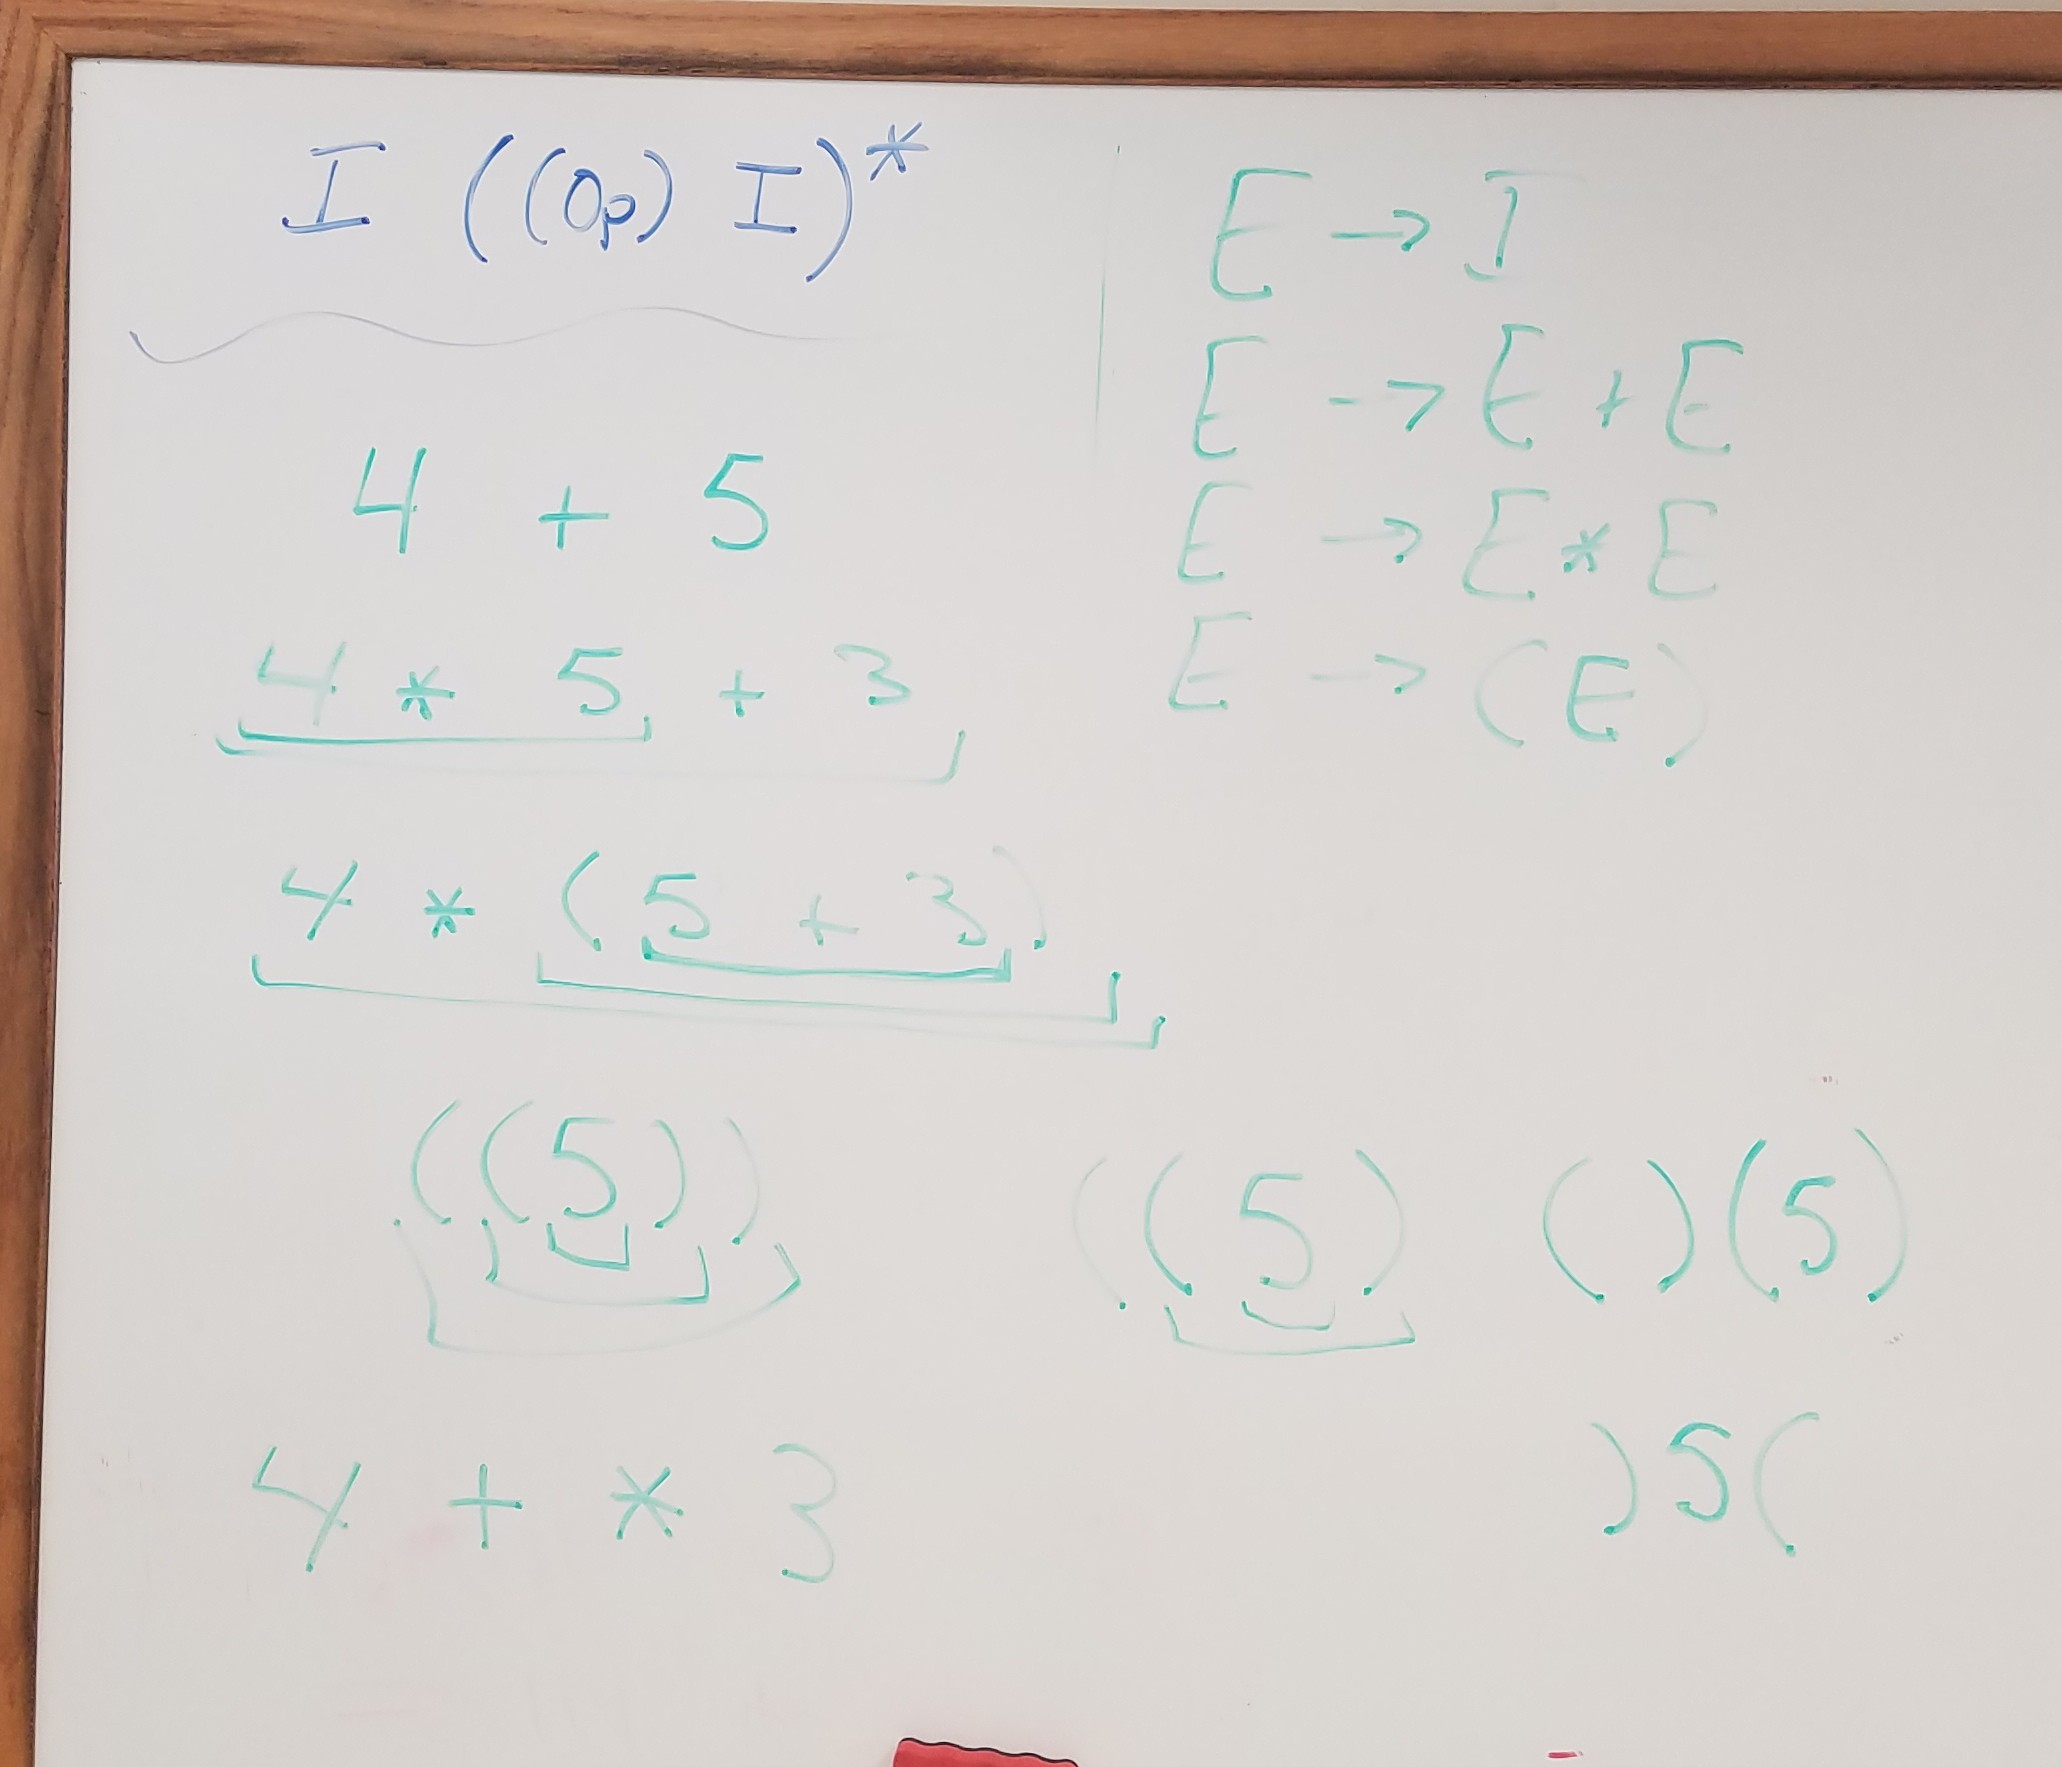 I ((Op) I)*
4 + 5
4 * 5 + 3
4 * (5 + 3)
((5))
4 + * 3
E → I
E → E + E
E → E * E
E → (E)
((5)
()(5)
)5(